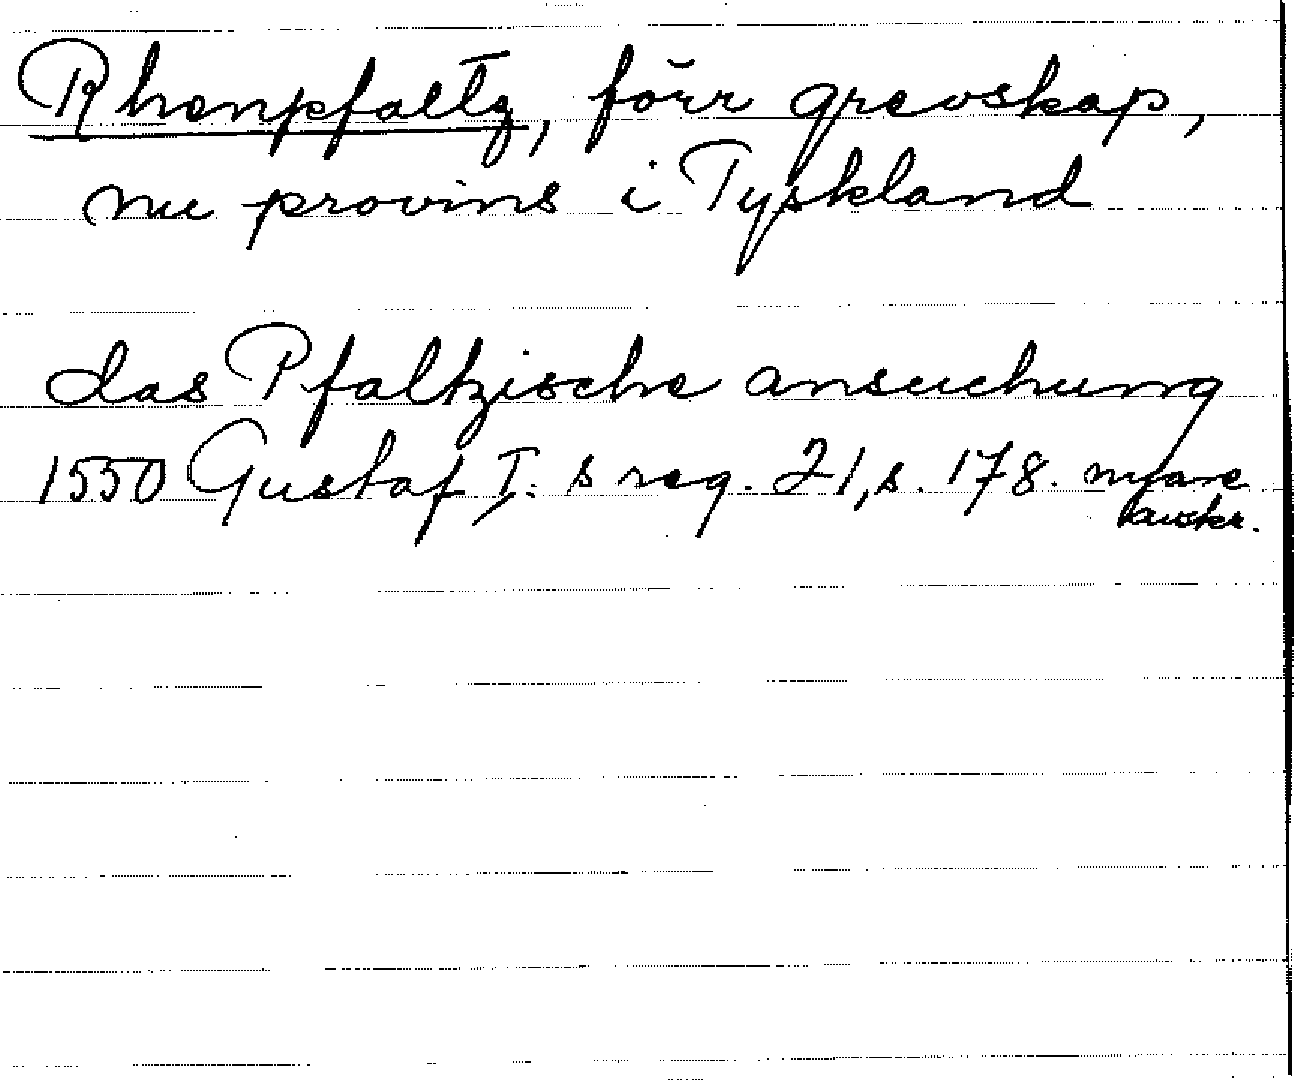 Rhenpfaltz, förr grevskap,
nu provins i Tyskland
das Pfaltzische ansuchung
1550 Gustaf I: s reg. 21, s. 178. nyare
avskr.